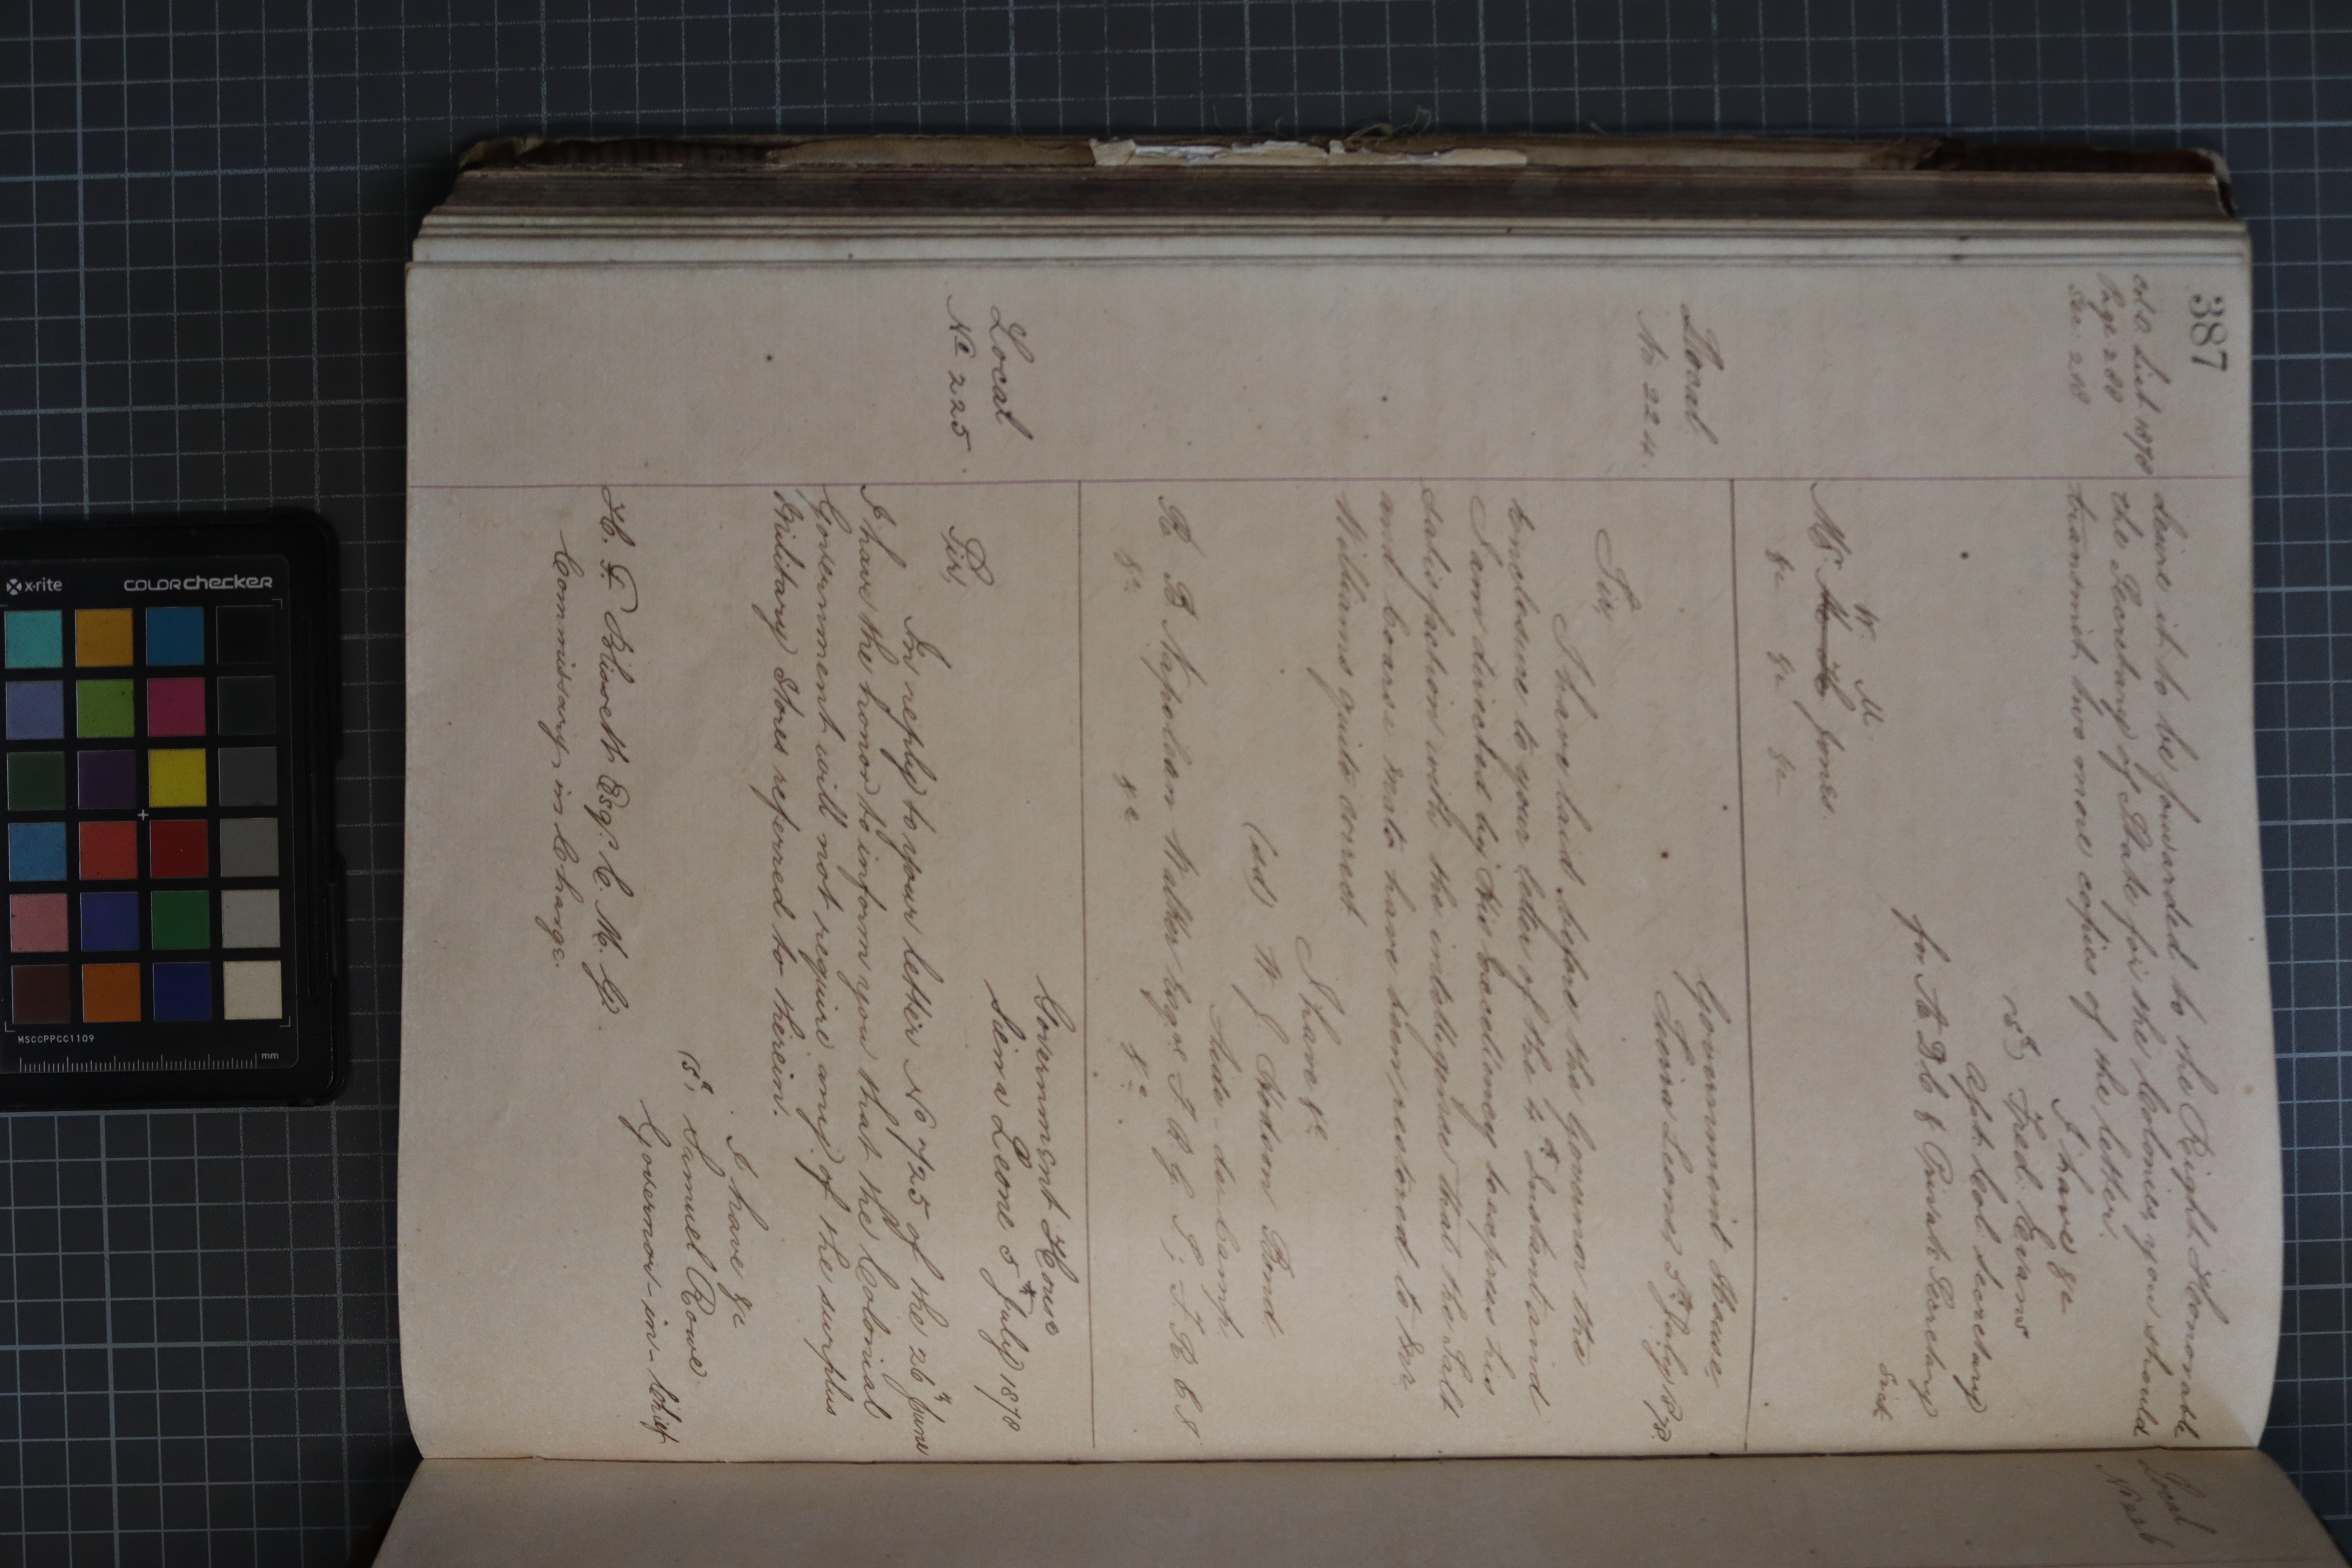 387
Col. O. List 1878
Page 288
Sec. 218
desire it to be forwarded to the Right Honorable
the Secretary of State for the Colonies, you should
transmit two more copies of the letter.
I have &c
Fred. Evans
Col. Secretary
for A D C & Private Secretary
Sick
W. M.
Mr. Jones.
&c &c &c
Local
No 224.
Government House
Sierra Leone 5th July 1878
Sir,
I have laid before the Governor the
enclosure to your letter of the 4th Instant and
I am directed by His Excellency to express his
satisfaction with the intelligence that the Salt
and coarse mats have been restored to
Williams quite correct
I have &c
(sd) W. J. Bond
Aide-de-Camp
Napolean Walker Esqre I. R. C. S
&c &c &c
Local
No 225.
Government House
Sierra Leone 5th July 1878
Sir,
In reply to your letter No 725 of the 26th June
I have the honor to inform you that the Colonial
Government will not require any of the surplus
Military Stores referred to therein.
I have &c
(sd) Samuel Rowe
Governor-in-Chief
H. F. Blissett Esq. C. M. G.
Commissary in Charge.
Local
No 226
x-rite
colorchecker
MSCCPPCC1109
mm